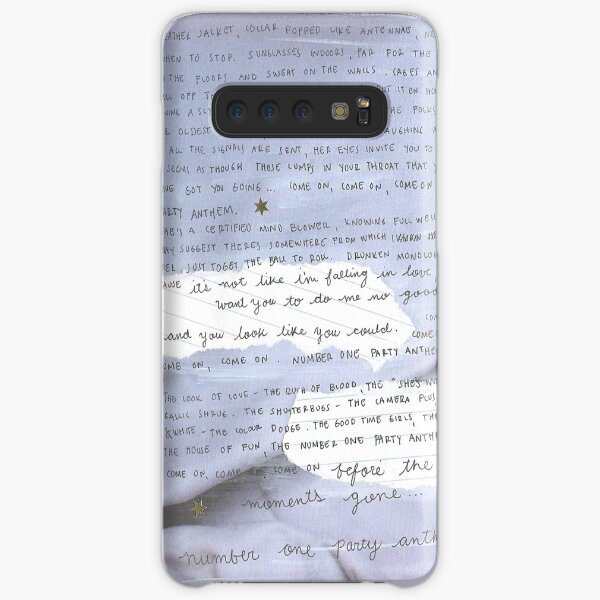 EATHER JACKET, COLLAR POPPED LIKE ANTENNAE, NE
HEN TO STOP. SUNGLASSES INDOORS, PAR FOR THE
THE FLOORS AND SWEAT ON THE WALLS. CAGES AN
LL OFF TH
IT ON HO
ING A SLY
THE FOLKS
R OLDEST
LAUGHING A
ALL THE SIGNALS ARE SENT, HER EYES INVITE YOU TO
SEEMS AS THOUGH THOSE LUMPS IN YOUR THROAT THAT Y
VE GOT YOU GOING... COME ON, COME ON, COME ON
ARTY ANTHEM.
HE'S A CERTIFIED MIND BLOWER, KNOWING FULL WELL
AY SUGGEST THERE'S SOMEWHERE FROM WHICH I
ER, JUST TO GET THE BALL TO ROLL. DRUNKEN MONOLOG
AUSE it's not like i'm falling in love
want you to do me no good
and you look like you could.
COM
COME
ME ON, COME ON. NUMBER ONE PARTY ANTHE
THE LOOK OF LOVE - THE RUSH OF BLOOD, THE "SHE'S WI
GALLIC SHRUG. THE SHUTTERBUGS - THE CAMERA PLUS
& WHITE - THE COLOUR DODGE. THE GOOD TIME GIRLS, THE
THE HOUSE OF FUN, THE NUMBER ONE PARTY ANTHE
COME ON, COME ON, COME ON before the
moments gone...
number one party anth